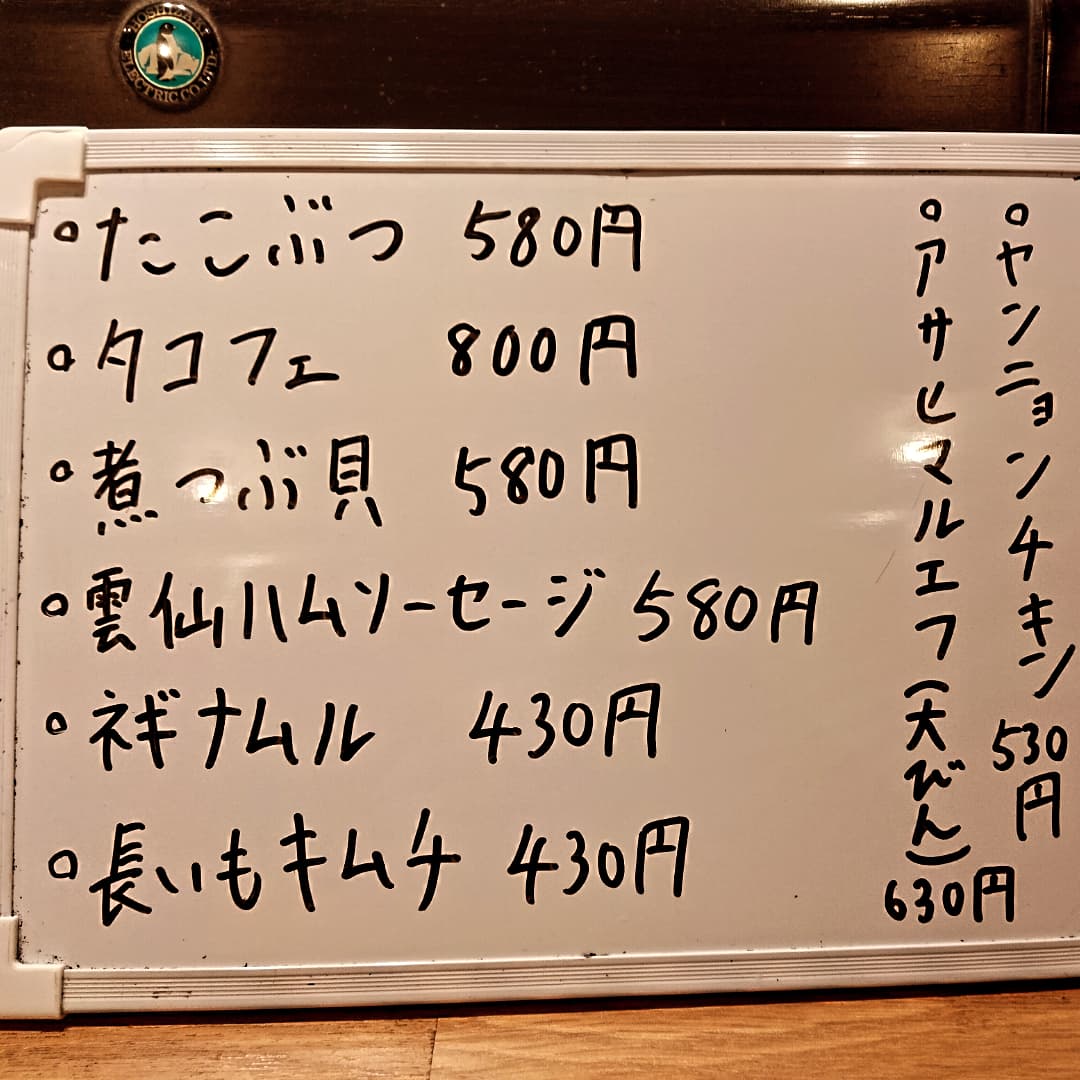 HOSHIZAKI ELECTRIC CO.,LTD.
○たこぶつ 580円
○タコフェ 800円
○煮つぶ貝 580円
○雲仙ハムソーセージ 580円
○ネギナムル 430円
○長いもキムチ 430円
○ヤンニョンチキン 530円
○アサヒマルエフ(大びん) 630円